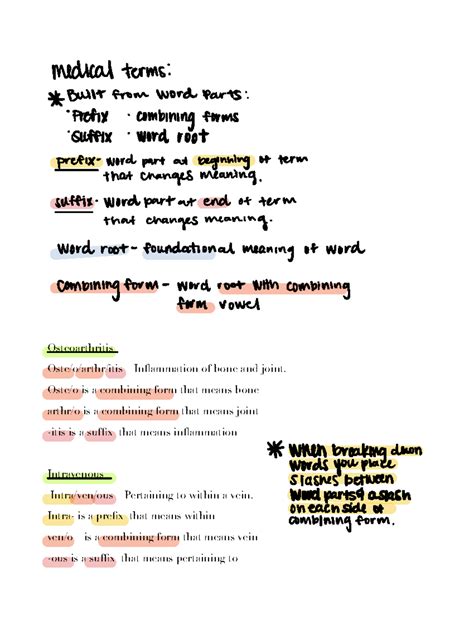 medical terms:
* Built from word parts:
· Prefix · combining forms
· Suffix · word root
prefix- word part at beginning of term
that changes meaning.
suffix- word part at end of term
that changes meaning.
Word root - foundational meaning of word
Combining form - word root with combining
form vowel
Osteoarthritis
Oste/o/arthr/itis Inflammation of bone and joint.
Oste/o is a combining form that means bone
arthr/o is a combining form that means joint
-itis is a suffix that means inflammation
* When breaking down
words you place
slashes between
word parts & a slash
on each side of
combining form.
Intravenous
Intra/ven/ous Pertaining to within a vein.
Intra- is a prefix that means within
ven/o is a combining form that means vein
-ous is a suffix that means pertaining to